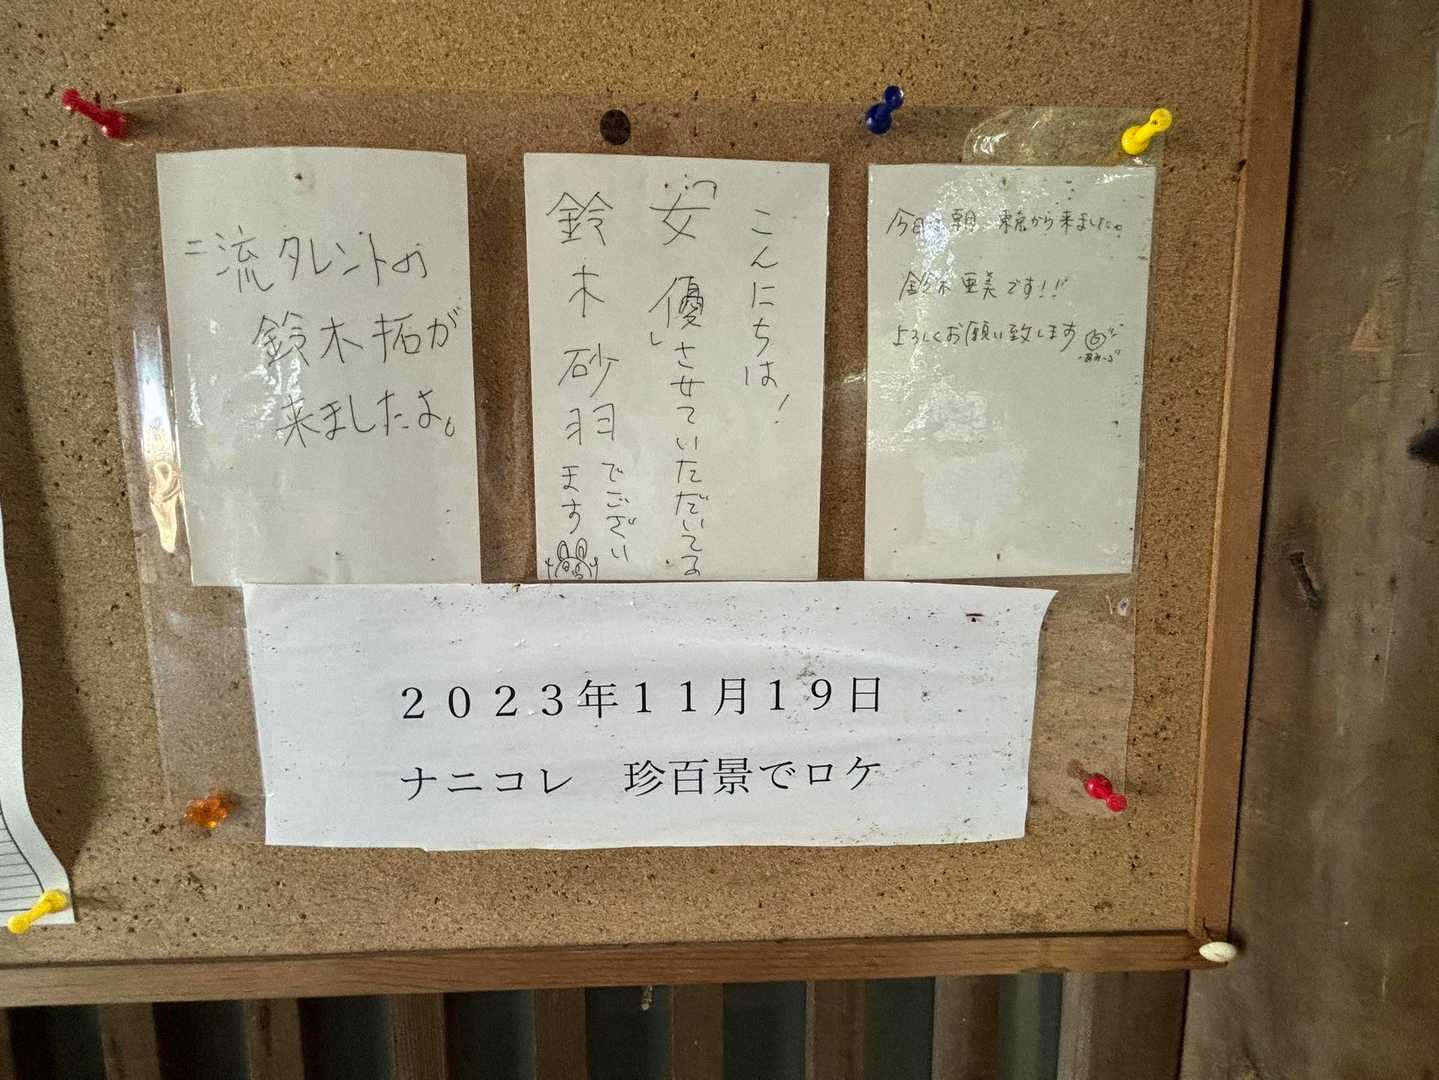 二流タレントの
鈴木拓が
来ましたよ。
こんにちは！
「女優」させていただいてる
鈴木砂羽でござい
ます
今日は朝、東京から来ました。
鈴木亜美です!!
よろしくお願い致します
あみーゴ
２０２３年１１月１９日
ナニコレ　珍百景でロケ